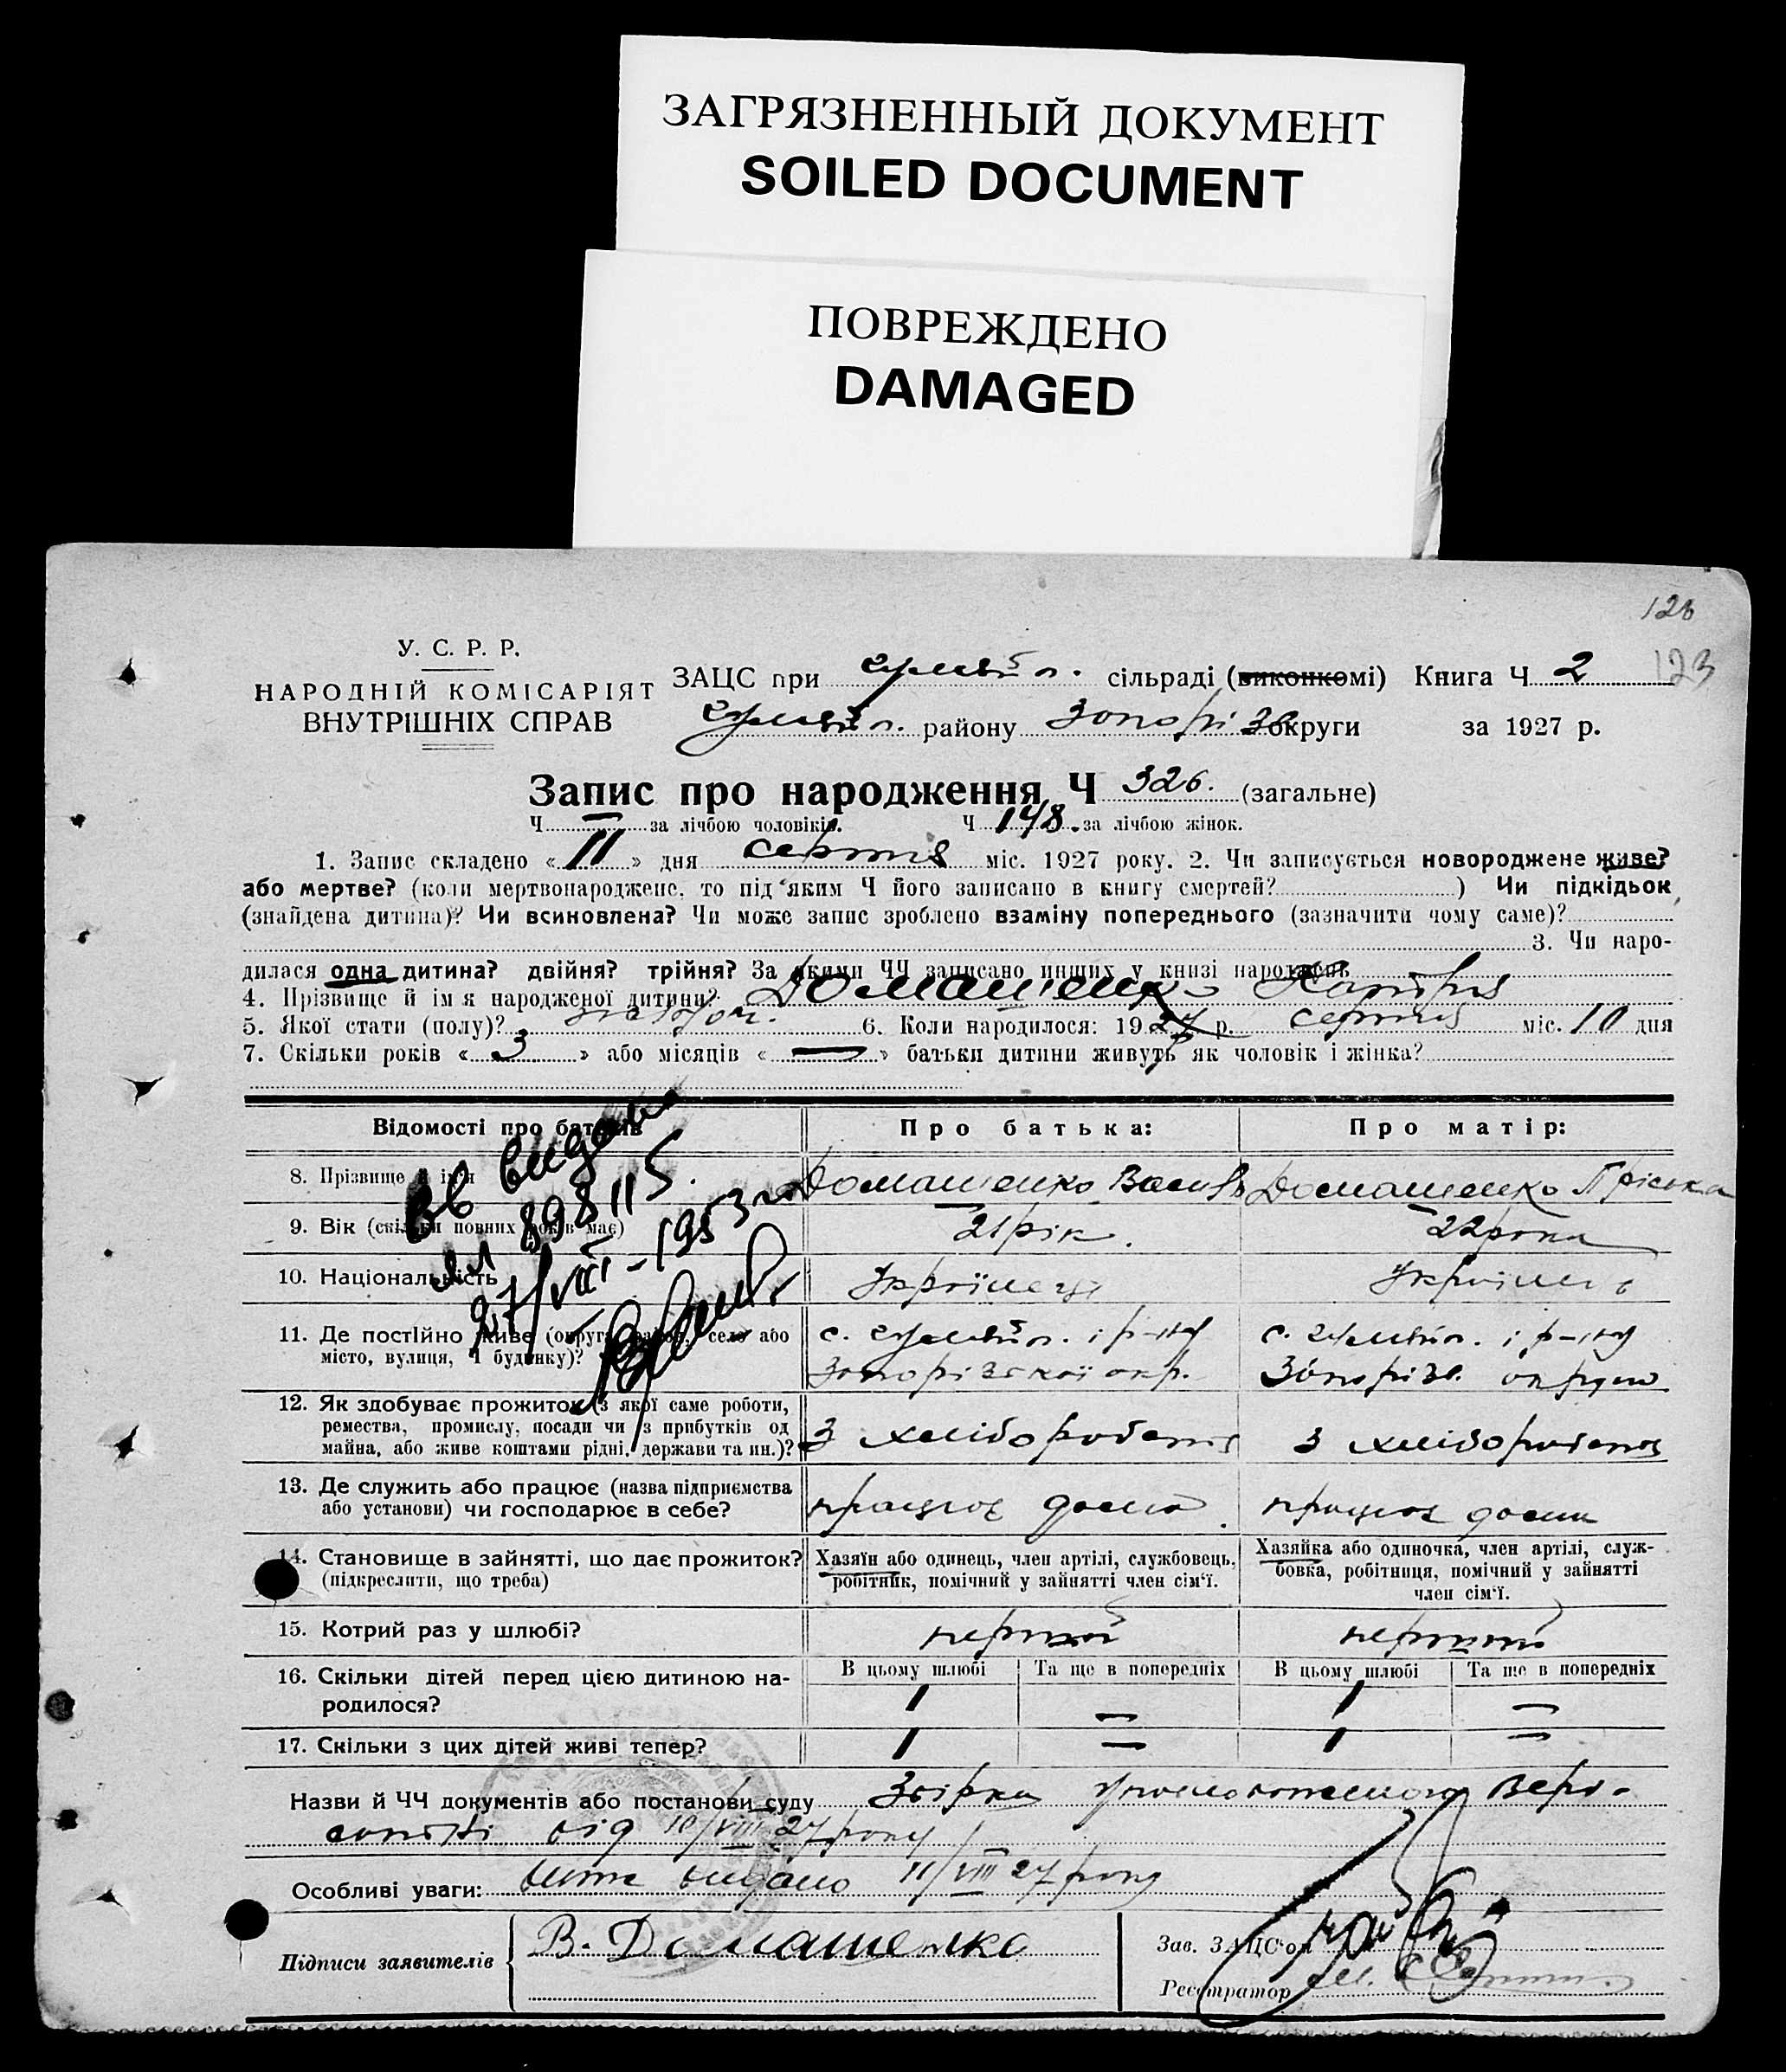 ЗАГРЯЗНЕННЫЙ ДОКУМЕНТ
SOILED DOCUMENT
ПОВРЕЖДЕНО
DAMAGED
126
123
У. С. Р. Р.
НАРОДНІЙ КОМІСАРІЯТ
ВНУТРІШНІХ СПРАВ
ЗАЦС при сільраді (виконкомі) Книга Ч 2
району округи за 1927 р.
Запис про народження Ч 326. (загальне)
Ч — за лічбою чоловіків. Ч 148. за лічбою жінок.
1. Запис складено « 11 » дня серпня міс. 1927 року. 2. Чи записується новороджене живе?
або мертве? (коли мертвонароджене, то під яким Ч його записано в книгу смертей? ) Чи підкідьок
(знайдена дитина)? Чи всиновлена? Чи може запис зроблено взаміну попереднього (зазначити чому саме)?
3. Чи наро-
дилася одна дитина? двійня? трійня? За якими ЧЧ записано инших у книзі народжень
4. Прізвище й ім'я народженої дитини? Домашенко
5. Якої стати (полу)? 6. Коли народилося: 1927 р. серпня міс. 10 дня
7. Скільки років « 3 » або місяців « — » батьки дитини живуть як чоловік і жінка?
Відомості про батьків
Про батька:
Про матір:
8. Прізвище й ім'я
Домашенко Василь
Домашенко Пріська
9. Вік (скільки повних років має)
21 рік.
22 роки
10. Національність
Українець
11. Де постійно живе (округа, район, село або
місто, вулиця, Ч будинку)?
с. і р-ну
Запорізької окр.
с. і р-ну
Запорізь. округи
12. Як здобуває прожиток (з якої саме роботи,
ремества, промислу, посади чи з прибутків од
майна, або живе коштами рідні, держави та ин.)?
З хліборобства
З хліборобства
13. Де служить або працює (назва підприємства
або установи) чи господарює в себе?
працює дома.
працює дома
14. Становище в зайнятті, що дає прожиток?
(підкреслити, що треба)
Хазяїн або одинець, член артілі, службовець,
робітник, помічний у зайнятті член сім'ї.
Хазяйка або одиночка, член артілі, служ-
бовка, робітниця, помічний у зайнятті
член сім'ї.
15. Котрий раз у шлюбі?
перший
перший
16. Скільки дітей перед цією дитиною на-
родилося?
В цьому шлюбі Та ще в попередніх В цьому шлюбі Та ще в попередніх
1 — 1 —
17. Скільки з цих дітей живі тепер?
1 — 1 —
вв видано
898115.
27/VIII-1953 г.
Назви й ЧЧ документів або постанови суду
від 10/VIII 27 року
Особливі уваги: видано 11/VIII 27 року
Підписи заявителів
В. Домашенко
Зав. ЗАЦС'ом
Реєстратор